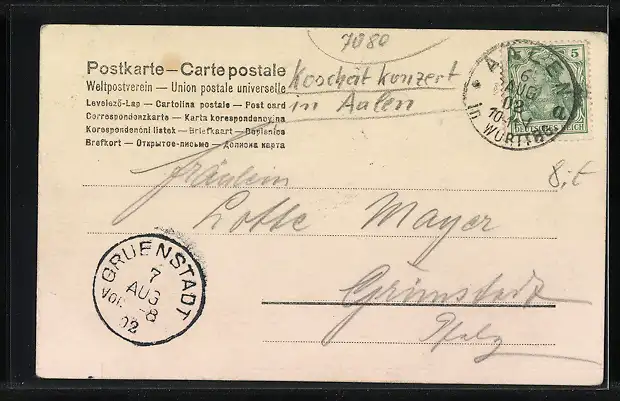 7080
Postkarte — Carte postale
Weltpostverein — Union postale universelle
Levelező-Lap — Cartolina postale — Post card
Correspondenzkarte — Karta korespondencyjna
Korespondenční lístek — Briefkaart — Dopisnica
Brefkort — Открытое-письмо — Дописна карта
Koschät konzert
in Aalen
5
DEUTSCHES REICH
AALEN
6
AUG
02
IN WÜRTTBG
8,t
Fräulein
Lotte Mayer
Grünstadt
Pfalz
GRUENSTADT
7
AUG
VOR. -8
02